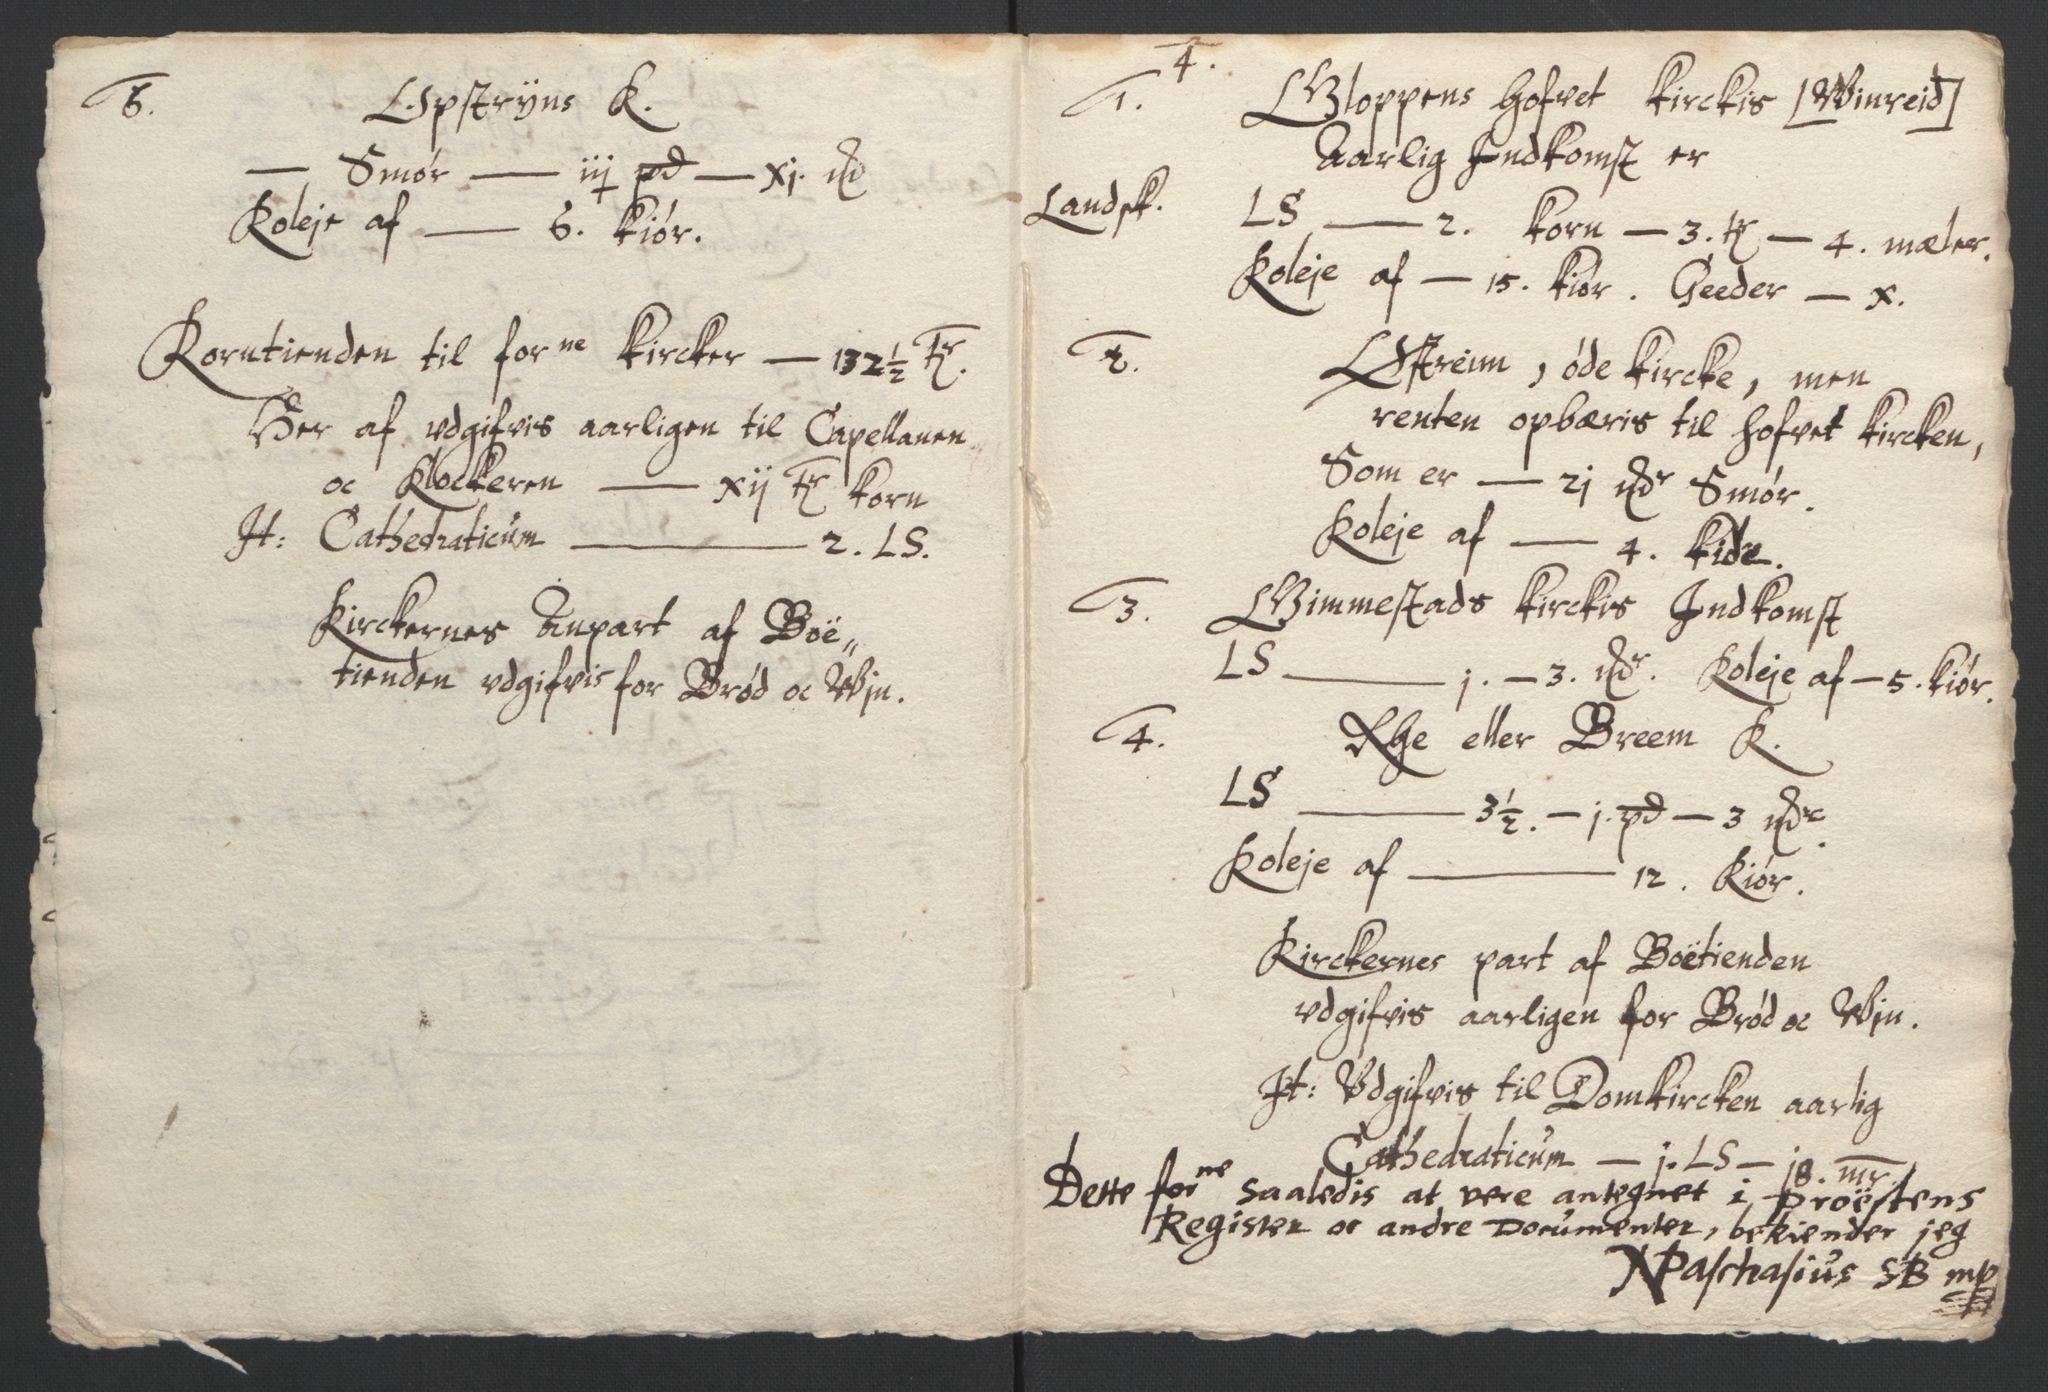 6. Opstryns K.
— Smør — iij pd — xj. mk
Koleje af — 6. kiør.
Korntienden til forne kircker — 132½ Tr.
Her af vdgifvis aarligen til Capellanen
oc Klockeren — xij Tr korn
It: Cathedraticum — 2. LS.
Kirckernes Anpart af Boë„
tienden vdgifvis for Brød oc Vijn.
4.
1. Gloppens hofvet kirckis [Vinreid]
Aarlig Indkomst er
Landsk. LS — 2. korn — 3. tr — 4. mæler.
Koleje af — 15. kiør. Geeder — x.
2. Østreim, øde kircke, men
renten opbæris til hofvet kircken,
Som er — 21 mkr Smør.
Koleje af — 4. kiør.
3. Gimmestads kirckis Indkomst
LS — j. — 3. mkr. Koleje af — 5. kiør.
4. Rhe eller Breem K.
LS — 3½. — j. pd — 3 mkr.
Koleje af — 12. Kiør.
Kirckernes part af Boëtienden
vdgifvis aarligen for Brød oc Vijn.
It: Vdgifvis til Domkircken aarlig
Cathedraticum — j. LS — 18. mr.
Dette forne saaledis at vere antegnet i Proëstens
Register oc andre Documenter, bekiender jeg
NPaschasius SB mp